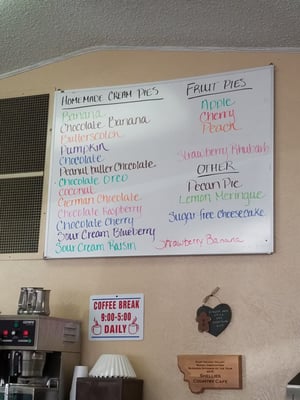 HOMEMADE CREAM PIES
Banana
Chocolate Banana
Butterscotch
Pumpkin
Chocolate
Peanut butter Chocolate
Chocolate Oreo
Coconut
German Chocolate
Chocolate Raspberry
Chocolate Cherry
Sour Cream Blueberry
Sour Cream Raisin
FRUIT PIES
Apple
Cherry
Peach
Strawberry Rhubarb
OTHER
Pecan Pie
Lemon Meringue
Sugar Free Cheesecake
Strawberry Banana
COFFEE BREAK
9:00-5:00
DAILY
SHELLIES
COUNTRY CAFE